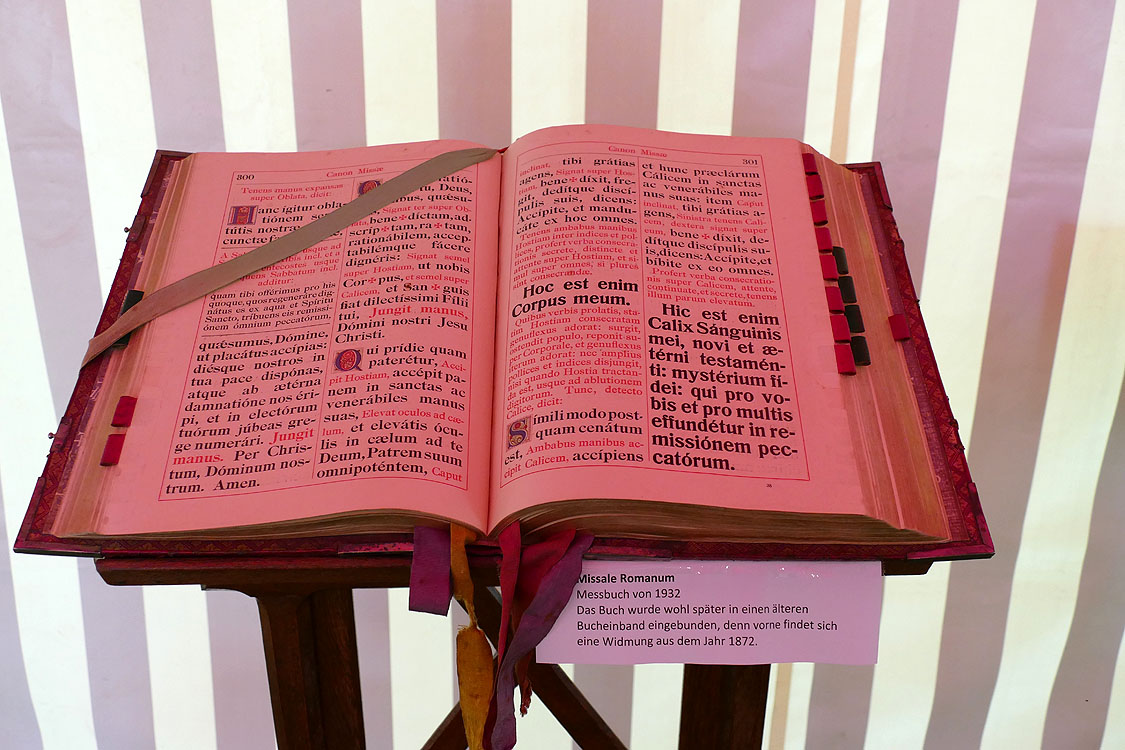 300
Canon Missæ
Tenens manus expansas
super Oblata, dicit:
Hanc igitur obla-
tiónem
tutis nostræ
cunctæ
usque ad
incl. et a
entecostes usque
Sabbatum incl.
additur:
quam tibi offérimus pro his
quoque, quos regeneráre dig-
nátus es ex aqua et Spíritu
Sancto, tríbuens eis remissi-
ónem ómnium peccatórum,
quǽsumus, Dómine,
ut placátus accípias:
diésque nostros in
tua pace dispónas,
atque ab ætérna
damnatióne nos éri-
pi, et in electórum
tuórum júbeas gre-
ge numerári. Jungit
manus. Per Chris-
tum, Dóminum nos-
trum. Amen.
Deus,
quǽsu-
Signat ter super Ob-
bene✠díctam, ad-
scríp✠tam, ra✠tam,
rationábilem, accep-
tabilémque fácere
dignéris: Signat semel
super Hostiam, ut nobis
Cor✠pus, et semel super
Calicem, et San✠guis
fiat dilectíssimi Fílii
tui, Jungit manus,
Dómini nostri Jesu
Christi.
Qui prídie quam
paterétur, Acci-
pit Hostiam, accépit pa-
nem in sanctas ac
venerábiles manus
suas, Elevat oculos ad cæ-
lum, et elevátis ócu-
lis in cælum ad te
Deum, Patrem suum
omnipoténtem, Caput
Canon Missæ
301
inclinat, tibi grátias
agens, Signat super Hos-
tiam, bene✠dixit, fre-
git, dedítque discí-
pulis suis, dicens:
Accípite, et mandu-
cáte ex hoc omnes.
Tenens ambabus manibus
Hostiam inter indices et pol-
lices, profert verba consecra-
tionis secrete, distincte et
attente super Hostiam, et si-
mul super omnes, si plures
sint consecrandæ.
Hoc est enim
Corpus meum.
Quibus verbis prolatis, sta-
tim Hostiam consecratam
genuflexus adorat: surgit,
ostendit populo, reponit su-
per Corporale, et genuflexus
iterum adorat: nec amplius
pollices et indices disjungit,
nisi quando Hostia tractan-
da est, usque ad ablutionem
digitorum. Tunc, detecto
Calice, dicit:
Símili modo post-
quam cenátum
est, Ambabus manibus ac-
cipit Calicem, accípiens
et hunc præclárum
Cálicem in sanctas
ac venerábiles ma-
nus suas: item Caput
inclinat, tibi grátias a-
gens, Sinistra tenens Cali-
cem, dextera signat super
eum, bene✠dixit, de-
dítque discípulis su-
is, dicens: Accípite, et
bíbite ex eo omnes.
Profert verba consecratio-
nis super Calicem, attente,
continuate, et secrete, tenens
illum parum elevatum.
Hic est enim
Calix Sánguinis
mei, novi et æ-
térni testamén-
ti: mystérium fí-
dei: qui pro vo-
bis et pro multis
effundétur in re-
missiónem pec-
catórum.
Missale Romanum
Messbuch von 1932
Das Buch wurde wohl später in einen älteren
Bucheinband eingebunden, denn vorne findet sich
eine Widmung aus dem Jahr 1872.